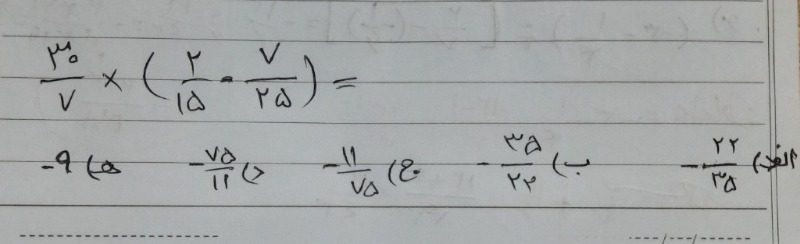 ۳۰/۷ × (۲/۱۵ - ۷/۲۵) =
الف) -۲۲/۳۵ ب) -۳۵/۲۲ ج) -۱۱/۷۵ د) -۷۵/۱۱ ه) -۹